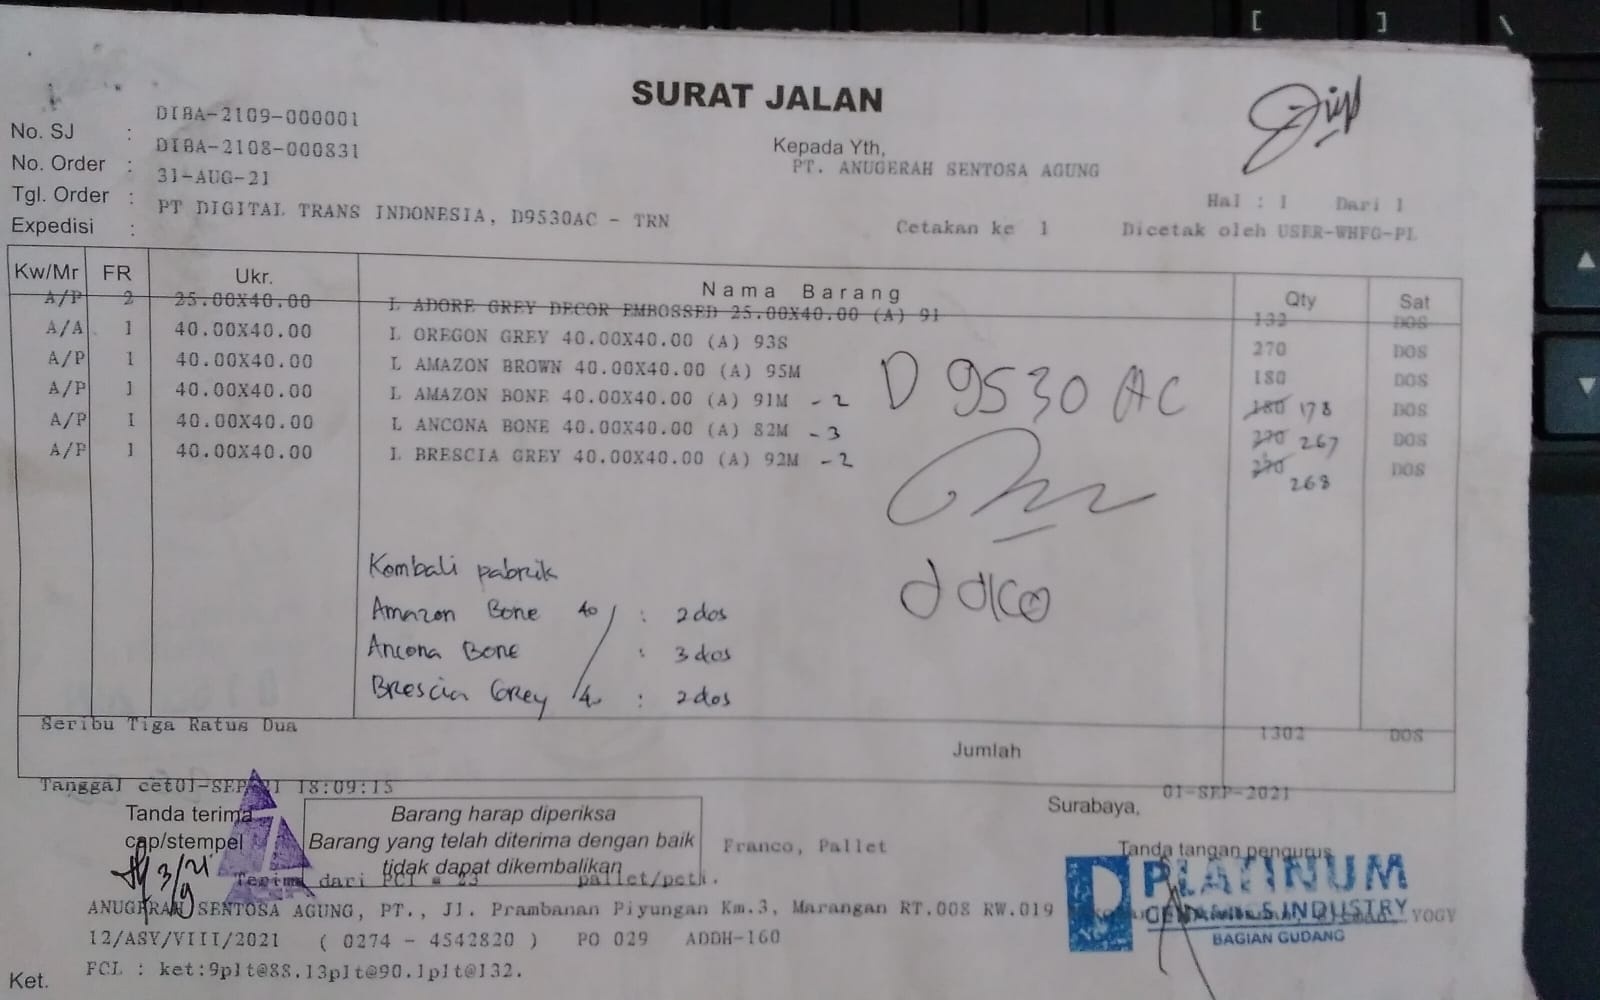 SURAT JALAN
No. SJ : DIBA-2109-000001
No. Order : DIBA-2108-000831
Tgl. Order : 31-AUG-21
Expedisi : PT DIGITAL TRANS INDONESIA, D9530AC - TRN
Kepada Yth,
PT. ANUGERAH SENTOSA AGUNG
Hal : 1 Dari 1
Cetakan ke 1 Dicetak oleh USER-WHFG-PL
Kw/Mr FR Ukr. Nama Barang Qty Sat
A/P 2 25.00X40.00 L ADORE GREY DECOR EMBOSSED 25.00X40.00 (A) 91 132 DOS
A/A 1 40.00X40.00 L OREGON GREY 40.00X40.00 (A) 93S 270 DOS
A/P 1 40.00X40.00 L AMAZON BROWN 40.00X40.00 (A) 95M 180 DOS
A/P 1 40.00X40.00 L AMAZON BONE 40.00X40.00 (A) 91M - 2 180 178 DOS
A/P 1 40.00X40.00 L ANCONA BONE 40.00X40.00 (A) 82M - 3 270 267 DOS
A/P 1 40.00X40.00 L BRESCIA GREY 40.00X40.00 (A) 92M - 2 270 268 DOS
D 9530 AC
Kembali pabrik
Amazon Bone 40 : 2 dos
Ancona Bone : 3 dos
Brescia Grey 40 : 2 dos
Seribu Tiga Ratus Dua
Jumlah 1302 DOS
Tanggal cet01-SEP-21 18:09:15
Surabaya, 01-SEP-2021
Tanda terima
cap/stempel
Barang harap diperiksa
Barang yang telah diterima dengan baik
tidak dapat dikembalikan
Franco, Pallet
Tanda tangan pengurus
3/9 21
Terima dari PCI = 23 pallet/peti.
PLATINUM
CERAMICS INDUSTRY
BAGIAN GUDANG
ANUGERAH SENTOSA AGUNG, PT., Jl. Prambanan Piyungan Km.3, Marangan RT.008 RW.019 YOGY
12/ASY/VIII/2021 ( 0274 - 4542820 ) PO 029 ADDH-160
Ket. FCL : ket:9plt@88.13plt@90.1plt@132.
[ ] \